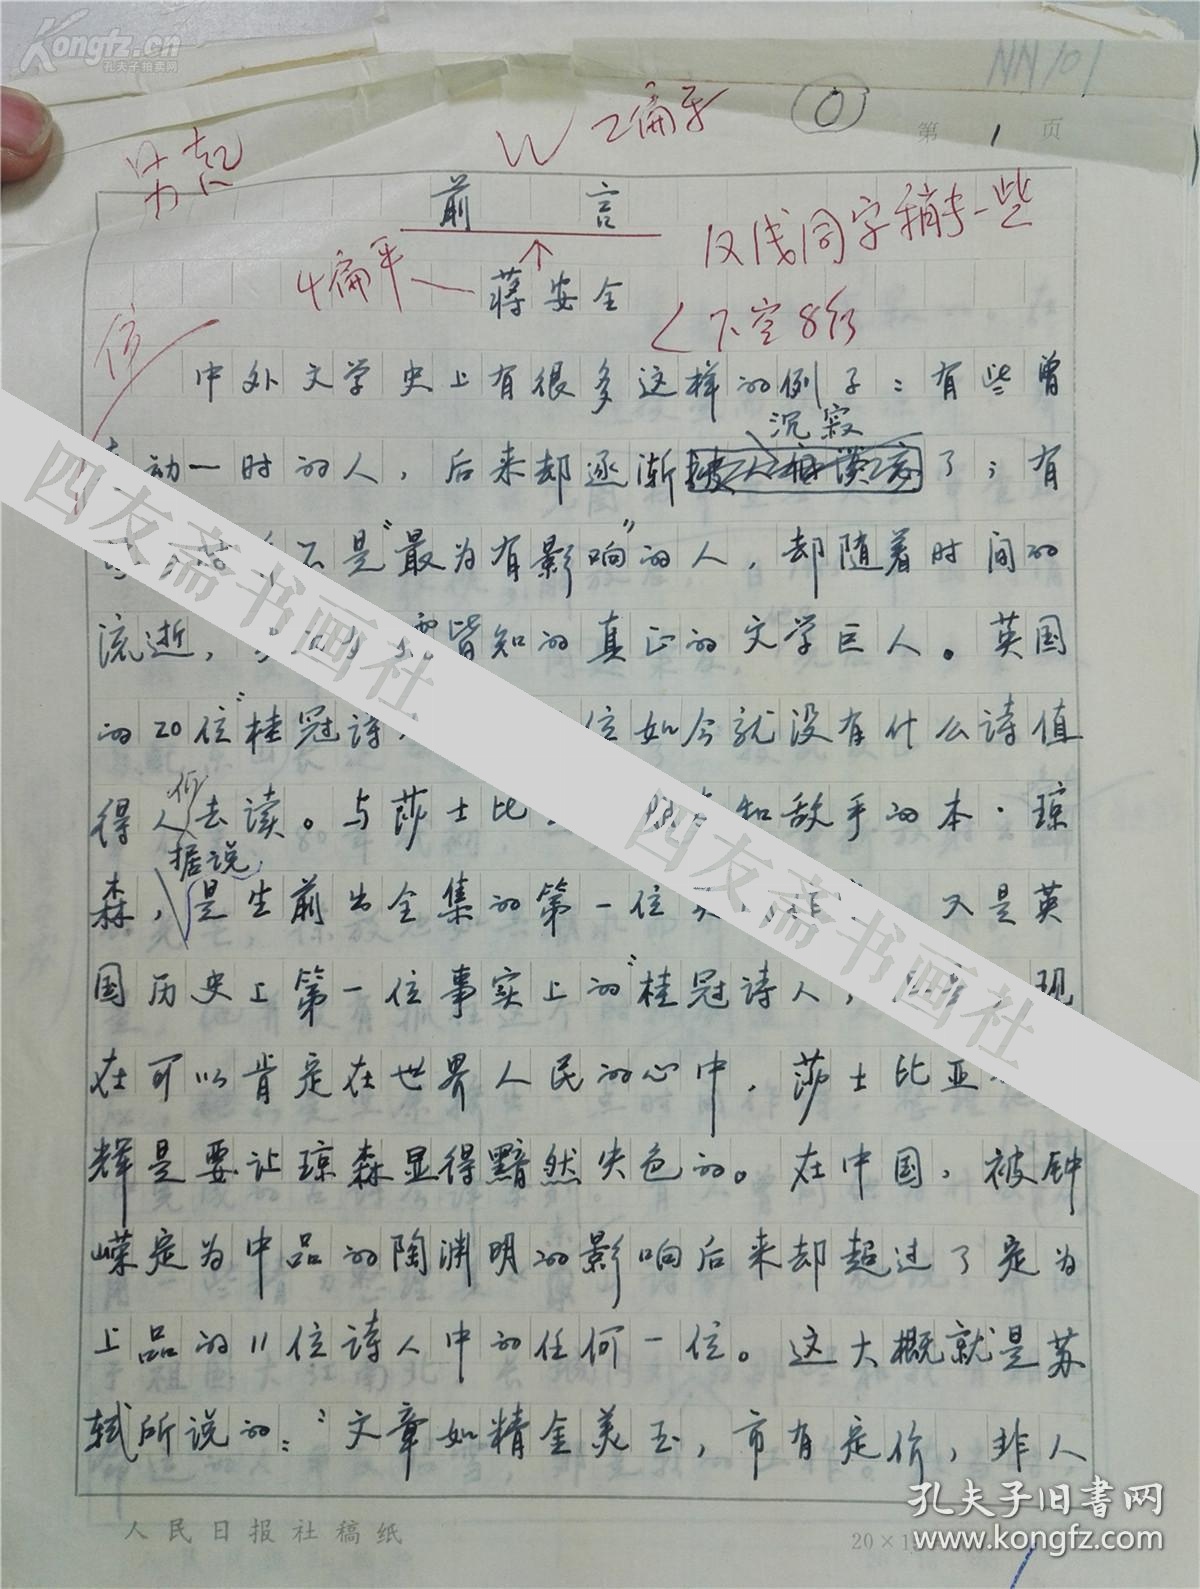 Kongfz.cn
孔夫子拍卖网
NN101
另起
2扁手
0
第 1 页
前言
仅浅同字稍一些
4扁平
蒋安全
下空8行
中外文学史上有很多这样的例子：有些曾
沉寂
动一时的人，后来却逐渐了；有
是“最为有影响”的人，却随着时间的
流逝，皆知的真正的文学巨人。英国
的20位“桂冠诗位如今就没有什么诗值
得人们去读。与莎士比和敌手的本·琼
据说
森，是生前出全集的第一位又是英
国历史上第一位事实上的“桂冠诗人，现
在可以肯定在世界人民的心中，莎士比亚
辉是要让琼森显得黯然失色的。在中国，被钟
嵘定为中品的陶渊明的影响后来却超过了定为
上品的11位诗人中的任何一位。这大概就是苏
轼所说的：“文章如精金美玉，市有定价，非人
四友斋书画社
四友斋书画社
人民日报社稿纸
20×1
孔夫子旧书网
www.kongfz.com